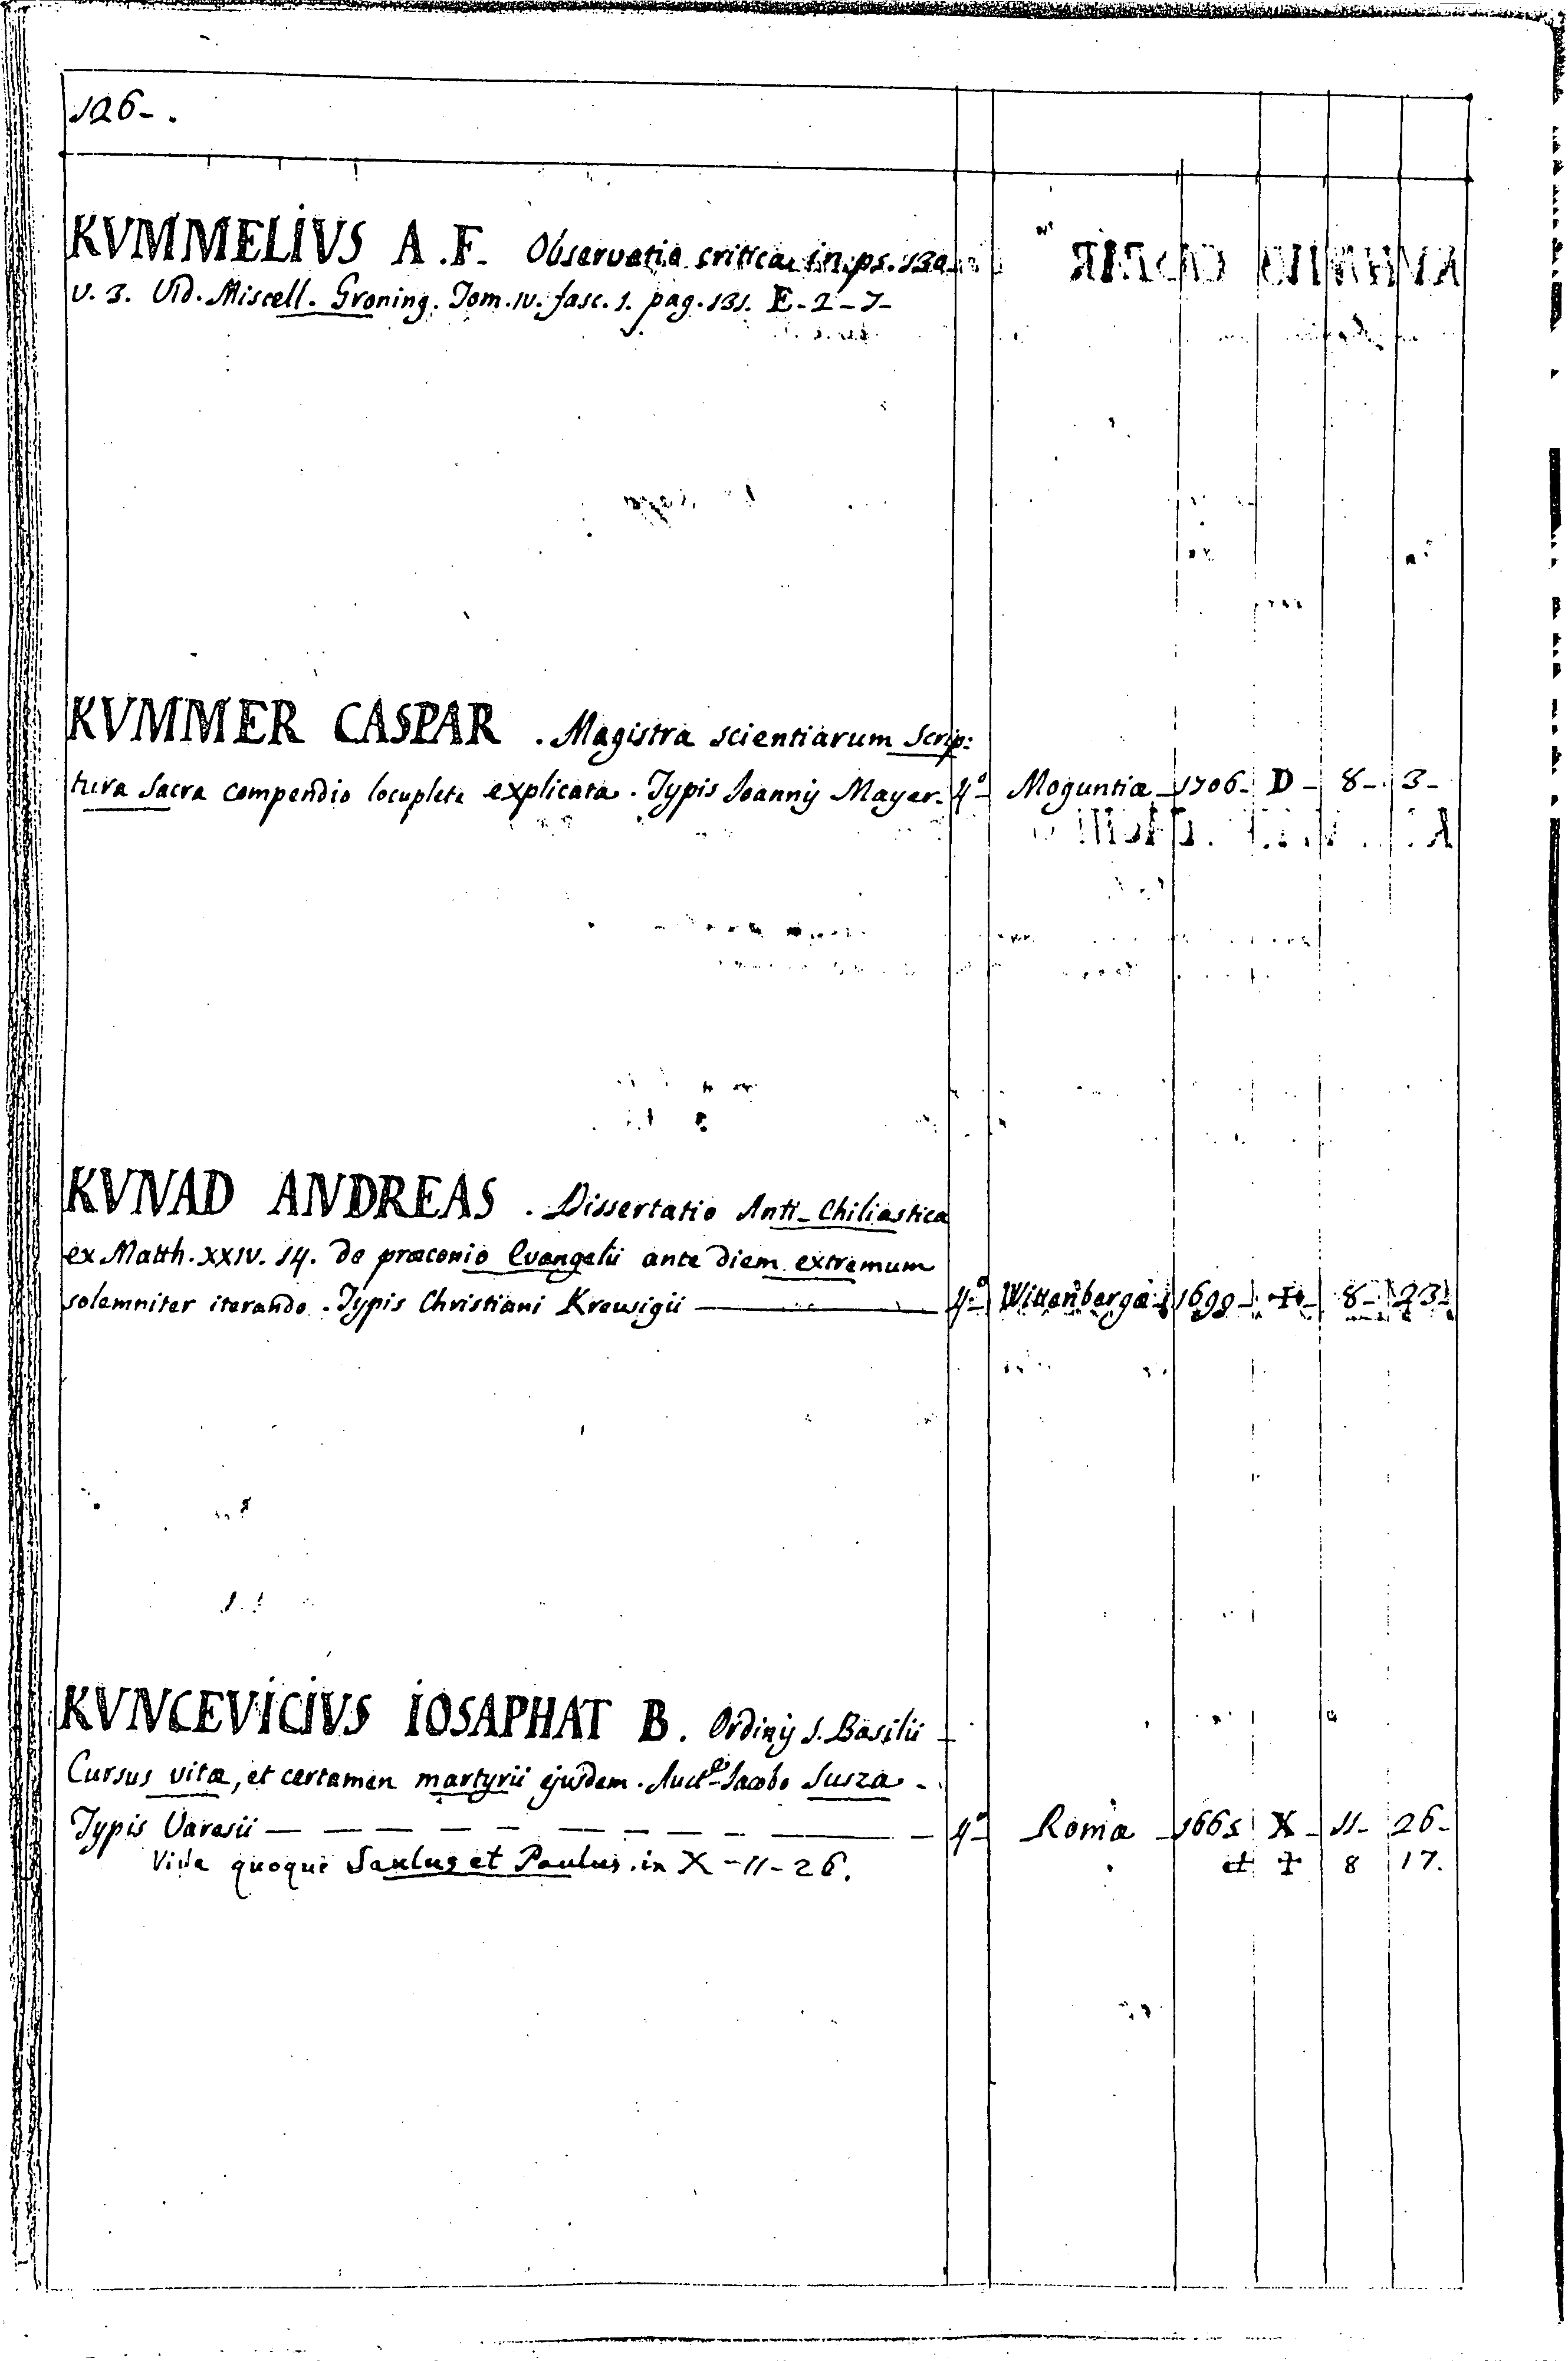 126-.
KVMMELIVS A.F. Observatio critica in ps. 130
v. 3. Vid. Miscell. Groning. Tom. IV. fasc. 1. pag. 131. E-2-7-
KVMMER CASPAR. Magistra scientiarum Scrip:
tura Sacra compendio locuplete explicata. Typis Joannij Mayer. 4º- Moguntiæ - 1706- D- 8- 3-
KVNAD ANDREAS. Dissertatio Anti-Chiliastica
ex Matth. XXIV. 14. de præconio Evangelii ante diem extremum
solemniter iterando. Typis Christiani Kreusigii — 4º- Wittenbergæ 1699- ‡- 8- 23-
KVNCEVICIVS IOSAPHAT B. Ordinij S. Basilii
Cursus vitæ, et certamen martyrii ejusdem. Auctº- Jacobo Susza-
Typis Varesii — 4º- Romæ - 1665 X- 11- 26-
Vide quoque Saulus et Paulus in X-11-26. et ‡ 8 17.